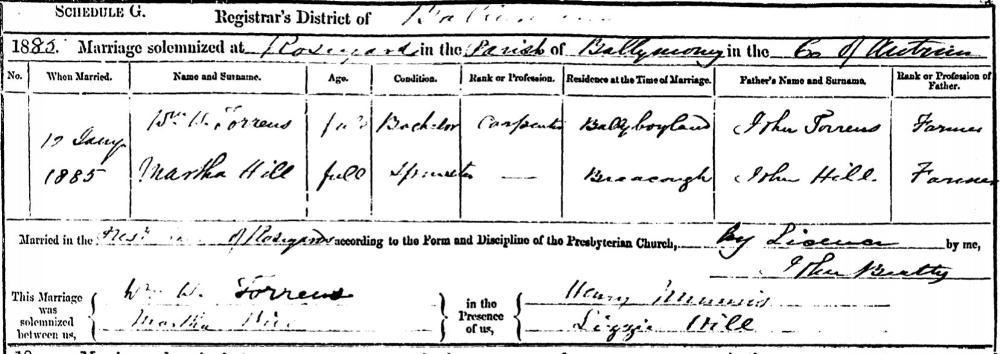 SCHEDULE G. Registrar's District of
1885. Marriage solemnized at Rosegard in the Parish of Ballymoney in the Co of Antrim
No. When Married. Name and Surname. Age. Condition. Rank or Profession. Residence at the Time of Marriage. Father's Name and Surname. Rank or Profession of Father.
12 Jany 1885 Wm. W. Torrens full Bachelor Carpenter Ballyboyland John Torrens Farmer
Martha Hill full Spinster — John Hill. Farmer
Married in the of Rosegard according to the Form and Discipline of the Presbyterian Church, By Licence by me,
John Beatty
This Marriage was solemnized between us, Wm. W. Torrens in the Presence of us, Henry
Martha Hill Lizzie Hill